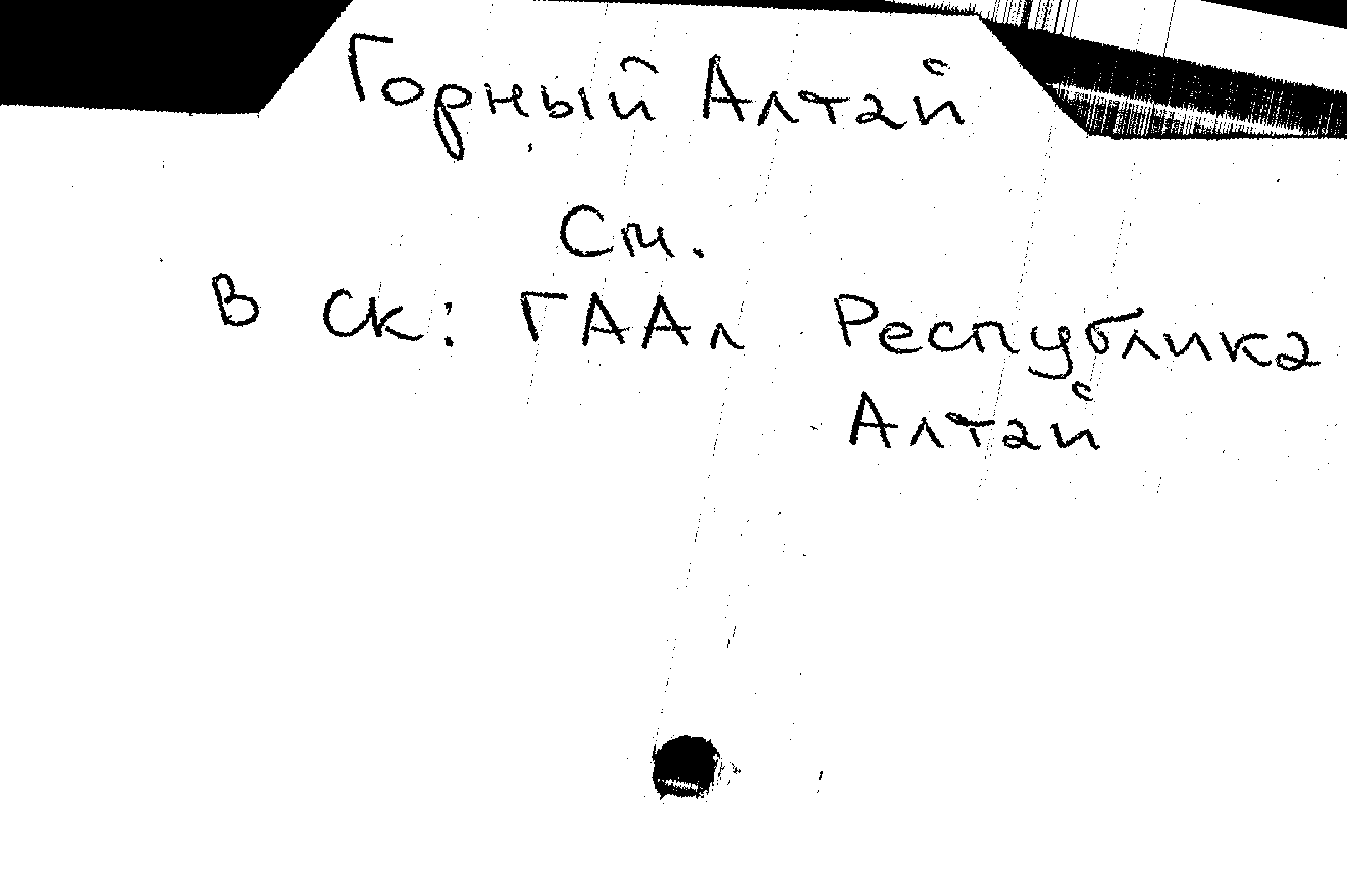 Горный Алтай
См.
В СК: ГААл Республика
Алтай